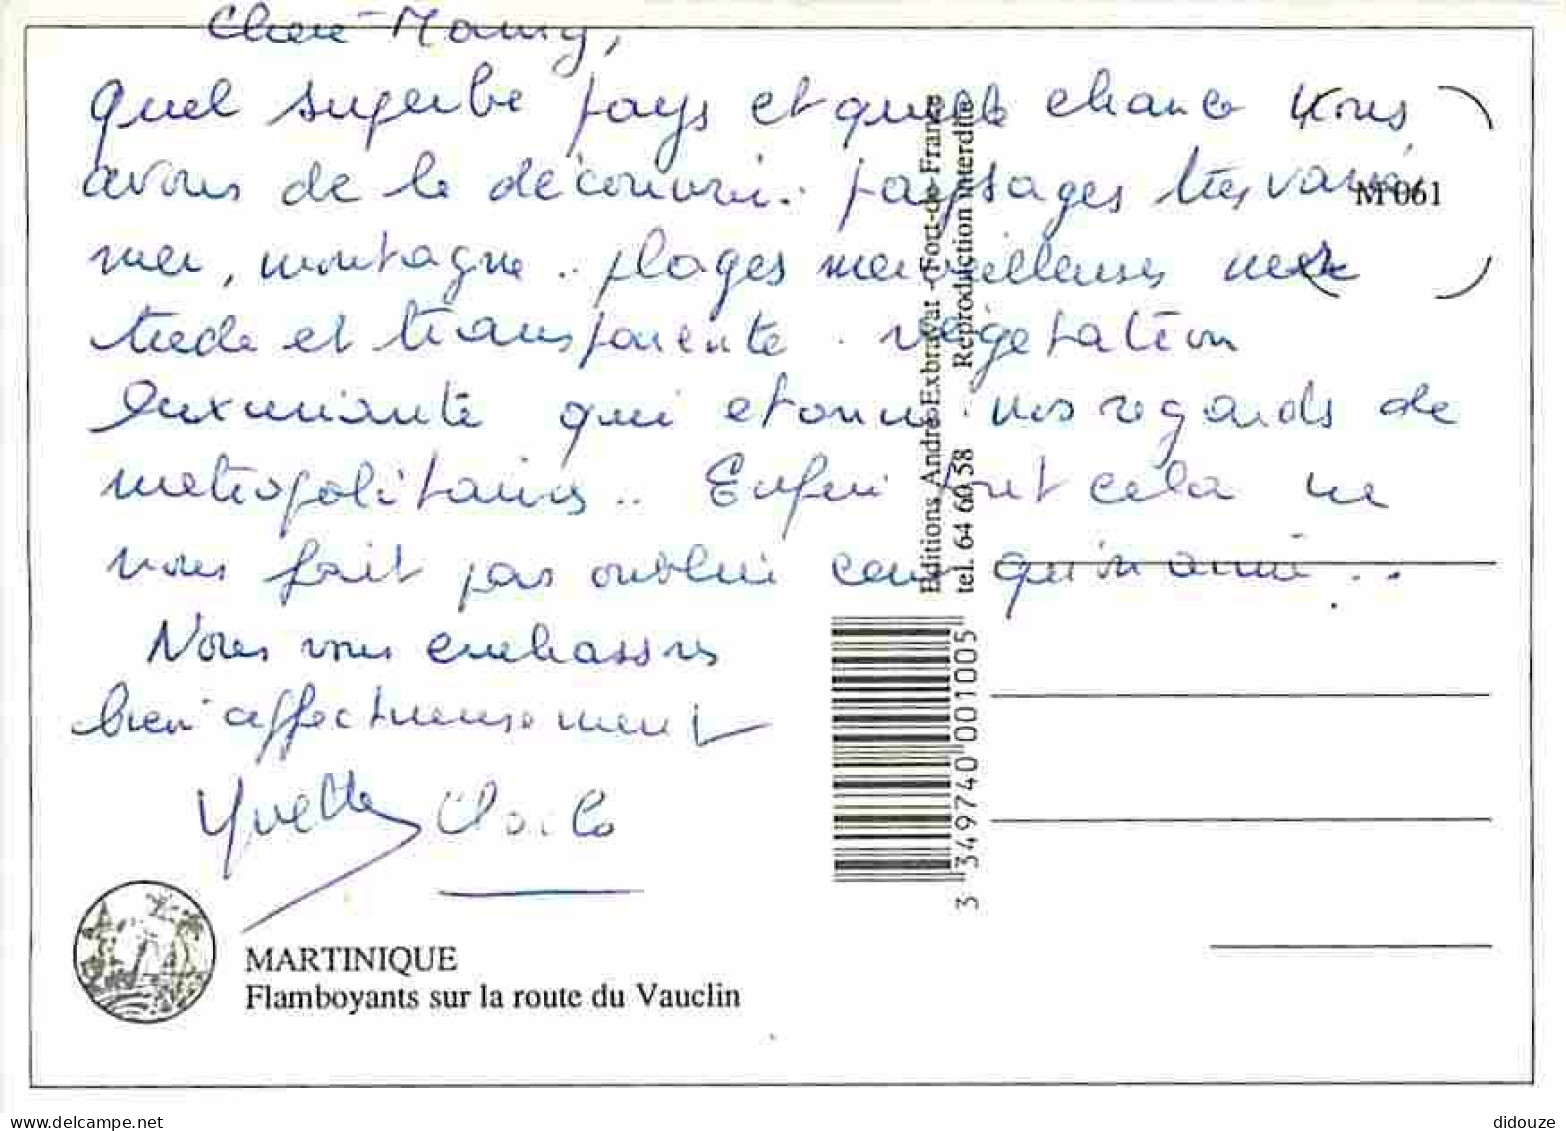 Chere Mamy,
Quel superbe pays et quelle chance nous
avons de le découvrir. paysages très variés,
M 061
mer, montagne .. plages merveilleuses mer
tiede et transparente . végétation
luxuriante qui etonne nos regards de
metropolitains .. Enfin tout cela ne
nous fait pas oublier ceux qu'on aime ...
Nous vous embrassons
bien affectueusement
Yvette
MARTINIQUE
Flamboyants sur la route du Vauclin
Editions André Exbrayat - Fort-de-France
tel. 64 60 58 Reproduction interdite
3 349740 001005
www.delcampe.net
didouze